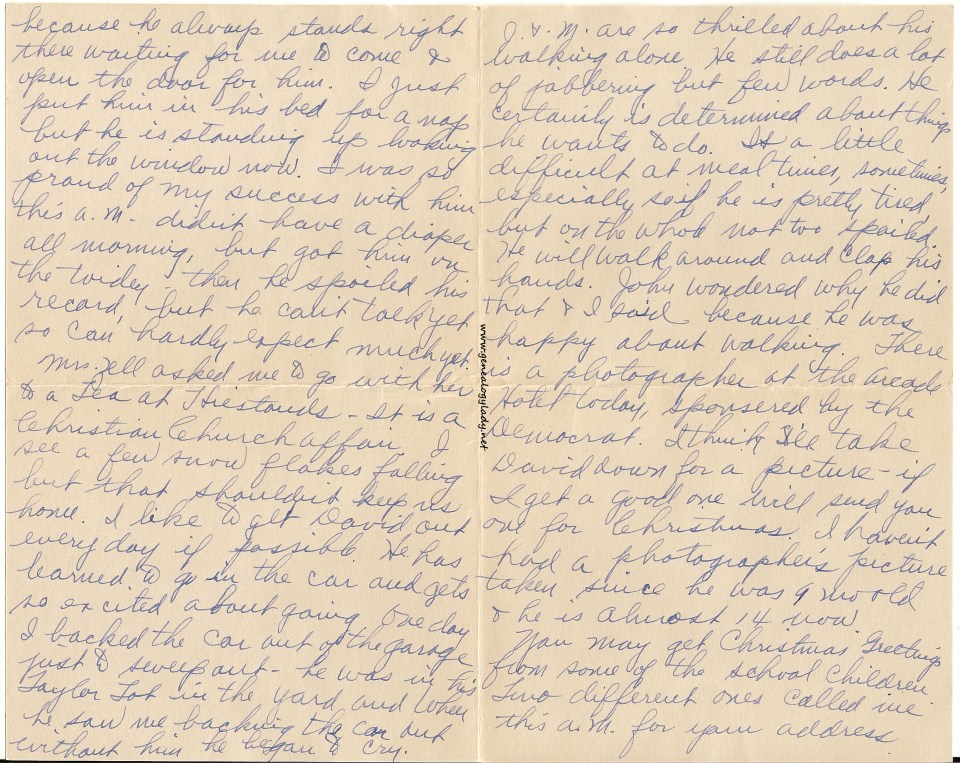 because he always stands right
there waiting for me to come &
open the door for him. I just
put him in his bed for a nap
but he is standing up looking
out the window now. I was so
proud of my success with him
this a.m. didn't have a diaper
all morning, but got him on
the toidey - then he spoiled his
record, but he can't talk yet
so can hardly expect much yet.
Mrs. Zell asked me to go with her
to a Tea at Hiestands - It is a
Christian Church affair. I
see a few snow flakes falling
but that shouldn't keep us
home. I like to get David out
every day if possible. He has
learned to go in the car and gets
so excited about going. One day
I backed the car out of the garage
just to sweep out - he was in his
Taylor Tot in the yard and when
he saw me backing the car out
without him he began to cry.
J. & M. are so thrilled about his
walking alone. He still does a lot
of jabbering but few words. He
certainly is determined about things
he wants to do. Is a little
difficult at meal times, sometimes,
especially so if he is pretty tired,
but on the whole not too spoiled.
He will walk around and clap his
hands. John wondered why he did
that & I said because he was
happy about walking. There
is a photographer at the Arcade
Hotel today, sponsered by the
Democrat. I think I'll take
David down for a picture - if
I get a good one will send you
one for Christmas. I haven't
had a photographer's picture
taken since he was 9 mo old
& he is almost 14 now
You may get Christmas Greetings
from some of the school children.
Two different ones called me
this a.m. for your address
www.genealogylady.net